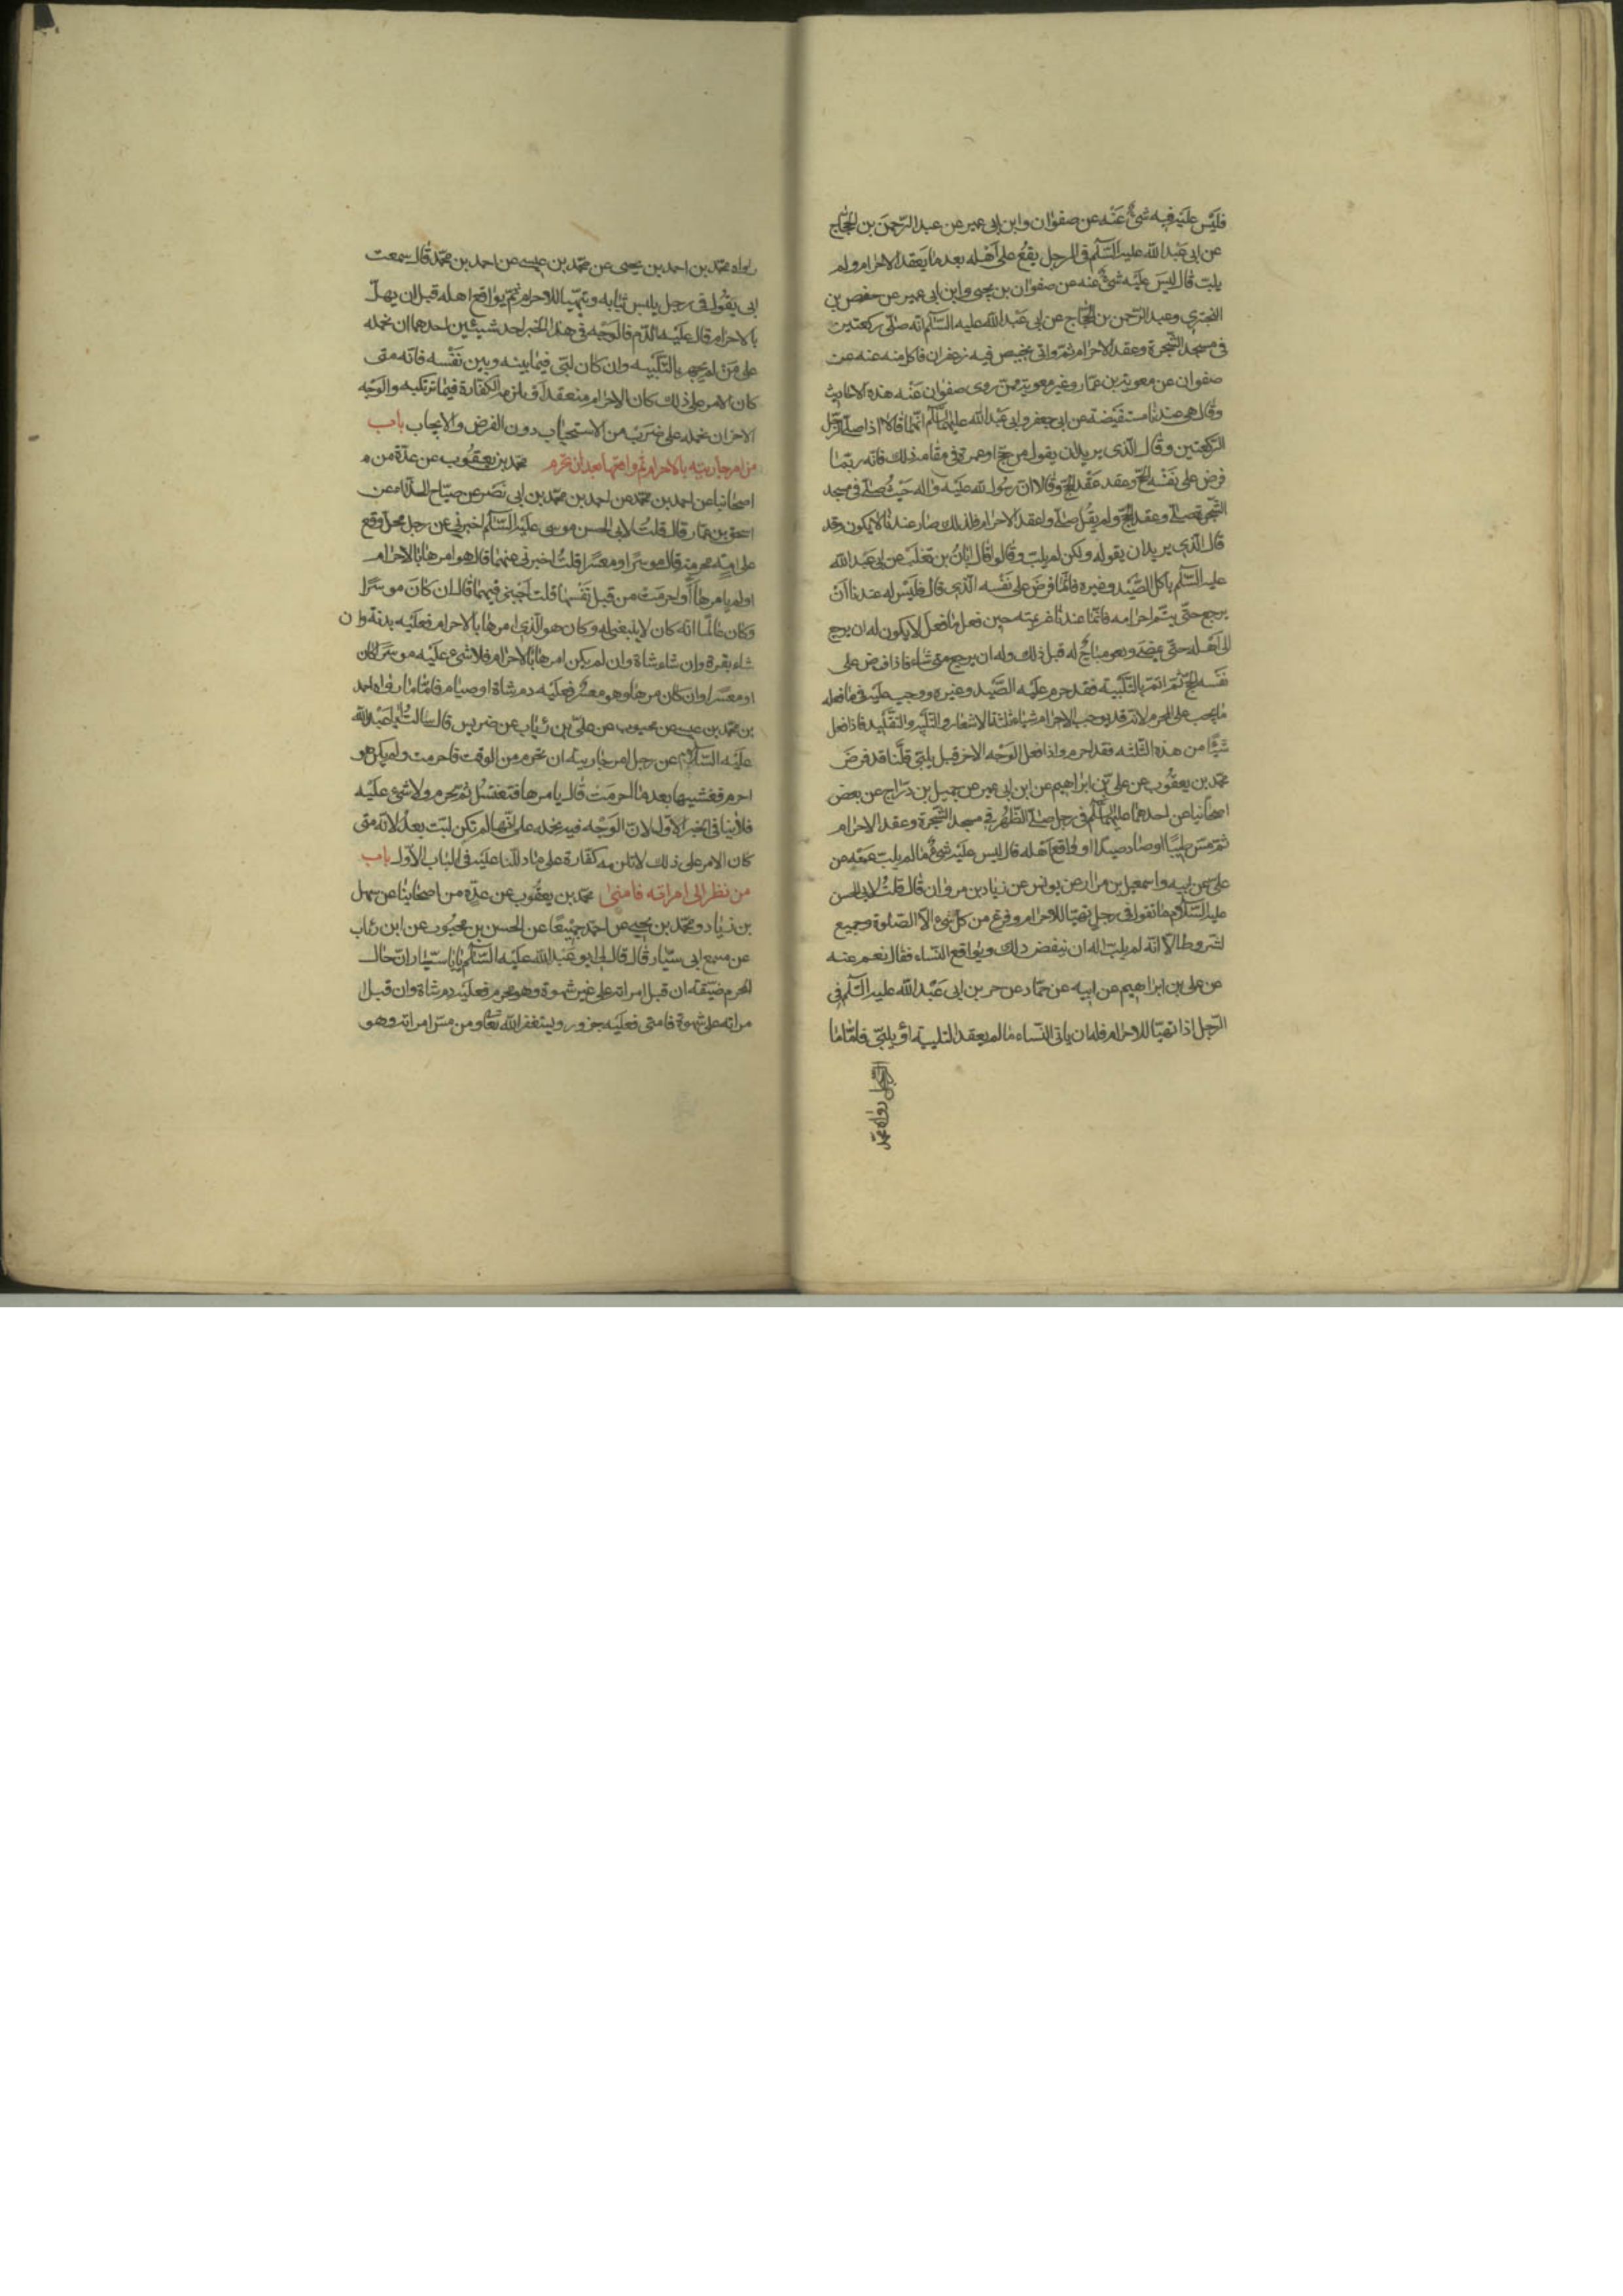 فليس عليه فيه شئ عنه عن صفوان وابن ابى عمير عن عبد الرّحمن بن الحجّاج
عن ابى عبد الله عليه السّلم فى الرجل يقع على اهله بعد ما يعقد الاحرام ولم
يلبّ قال ليس عليه شئ عنه عن صفوان بن يحيى وابن ابى عمير عن حفص بن
البختري وعبد الرّحمن بن الحجّاج عن ابى عبد الله عليه السّلم انّه صلّى ركعتين
فى مسجد الشّجرة وعقد الاحرام ثمّ واتى بخبيص فيه زعفران فاكل منه عنه عن
صفوان عن معوية بن عمّار وغير معوية ممّن روى صفوان عنه هذه الاحاديث
وقال هى عندنا مستفيضة عن ابى جعفر وابى عبد الله عليهما السّلم انّهما قالا اذا صلّى الرّجل
الرّكعتين وقال الّذى يريد ان يقول من حجّ او عمرة فى مقامه ذلك فانّه ربّما
فرض على نفسه الحجّ وعقد عقد الحجّ وقالا انّ رسول الله عليه واله حيث صلّى فى مسجد
الشّجرة صلّى وعقد الحجّ ولم يقل صلّى وعقد الاحرام فلذلك صار عندنا لا يكون وقد
قال الّذى يريد ان يقوله ولكن لم يلبّ وقالوا قال ابان بن تغلب عن ابى عبد الله
عليه السّلم ياكل الصّيد وغيره فانّما فرض على نفسه الّذى قال فليس له عندنا ان
يرجع حتّى يتمّ احرامه فانّما عندنا عزيمته حين فعل ما فعل لا يكون له ان يرجع
الى اهله حتّى يمضى وهو مباح له قبل ذلك وله ان يرجع متى شاء فاذا فرض على
نفسه الحجّ ثمّ اتمّ بالتّلبية فقد حرم عليه الصّيد وغيره ووجب عليه فى ما فعله
ما يجب على المحرم لانّه قد يوجب الاحرام اشياء ثلثة الاشعار والتّلبية والتّقليد فاذا فعل
شيئا من هذه الثّلثه فقد احرم واذا فعل الوجه الاخر قبل يلبّى قلنا قد فرض
محمّد بن يعقوب عن علىّ بن ابراهيم عن ابن ابى عمير عن جميل بن درّاج عن بعض
اصحابنا عن احدهما عليهما السّلم فى رجل صلّى الظّهر فى مسجد الشّجرة وعقد الاحرام
ثمّ مسّ طيبا او صاد صيدا او واقع اهله قال ليس عليه شئ ما لم يلبّ عنه عن
علىّ عن ابيه واسمعيل بن مرّار عن يونس عن زياد بن مروان قال قلت لابى الحسن
عليه السّلام ما تقول فى رجل تهيّا للاحرام وفرغ من كلّ شئ الّا الصّلوة وجميع
الشّروط الّا انّه لم يلبّ اله ان ينقض ذلك ويواقع النّساء فقال نعم عنه
عن على بن ابراهيم عن ابيه عن حمّاد عن حريز عن ابى عبد الله عليه السّلم فى
الرّجل اذا تهيّا للاحرام فله ان ياتى النّساء ما لم يعقد التلبية او يلبّى فامّا ما
الرّجل رواه محمّد
رواه محمّد بن احمد بن يحيى عن محمّد بن عيسى عن احمد بن محمّد قال سمعت
ابى يقول فى رجل يلبس ثيابه ويتهيّا للاحرام ثمّ يواقع اهله قبل ان يهلّ
بالاحرام قال عليه الدّم فالوجه فى هذا الخبر احد شيئين احدهما ان نحمله
على من لم يجهر بالتّلبيه وان كان لبّى فيما بينه وبين نفسه فانّه متى
كان الامر على ذلك كان الاحرام منعقدا ويلزمه الكفارة فيما يرتكبه والوجه
الاخر ان نحمله على ضرب من الاستحباب دون الفرض والايجاب باب
من امر جاريته بالاحرام ثم واقعها بعد ان تحرم محمّد بن يعقوب عن عدّة من
اصحابنا عن احمد بن محمّد عن احمد بن محمّد بن ابى نصر عن صبّاح الحذّاء عن
اسحق بن عمّار قال قلت لابى الحسن موسى عليه السّلم اخبرنى عن رجل محلّ وقع
على امة محرمة قال موسرا او معسرا قلت اخبرنى عنهما قال هو امرها بالاحرام
اولم يامرها او احرمت من قبل نفسها قلت اجبنى فيهما قال ان كان موسرا
وكان عالما انّه كان لا ينبغى له وكان هو الّذى امرها بالاحرام فعليه بدنة وان
شاء بقرة وان شاء شاة وان لم يكن امرها بالاحرام فلا شئ عليه موسرا كان
او معسرا وان كان امرها وهو معسر فعليه دم شاة او صيام فامّا ما رواه احمد
بن محمّد بن عيسى عن محبوب عن علىّ بن رئاب عن ضريس قال سالت ابا عبد الله
عليه السّلام عن رجل امر جاريته ان تحرم من الوقت فاحرمت ولم يكن هو
احرم فغشيها بعد ما احرمت قال يامرها فتغتسل ثمّ تحرم ولا شئ عليه
فلا ينافى الخبر الاوّل لانّ الوجه فيه نحمله على انّها لم تكن لبّت بعد لانّه متى
كان الامر على ذلك لا تلزمه كفّارة على ما دللنا عليه فى الباب الاوّل باب
من نظر الى امراته فامنى محمّد بن يعقوب عن عدّة من اصحابنا عن سهل
بن زياد ومحمّد بن يحيى عن احمد جميعا عن الحسن بن محبوب عن ابن رئاب
عن مسمع ابى سيّار قال قال لى ابو عبد الله عليه السّلم يا با سيّار انّ حال
المحرم ضيّقة ان قبل امراته على غير شهوة وهو محرم فعليه دم شاة وان قبل ا
مراته على شهوة فامنى فعليه جزور ويستغفر الله تعالى ومن مسّ امراته وهو